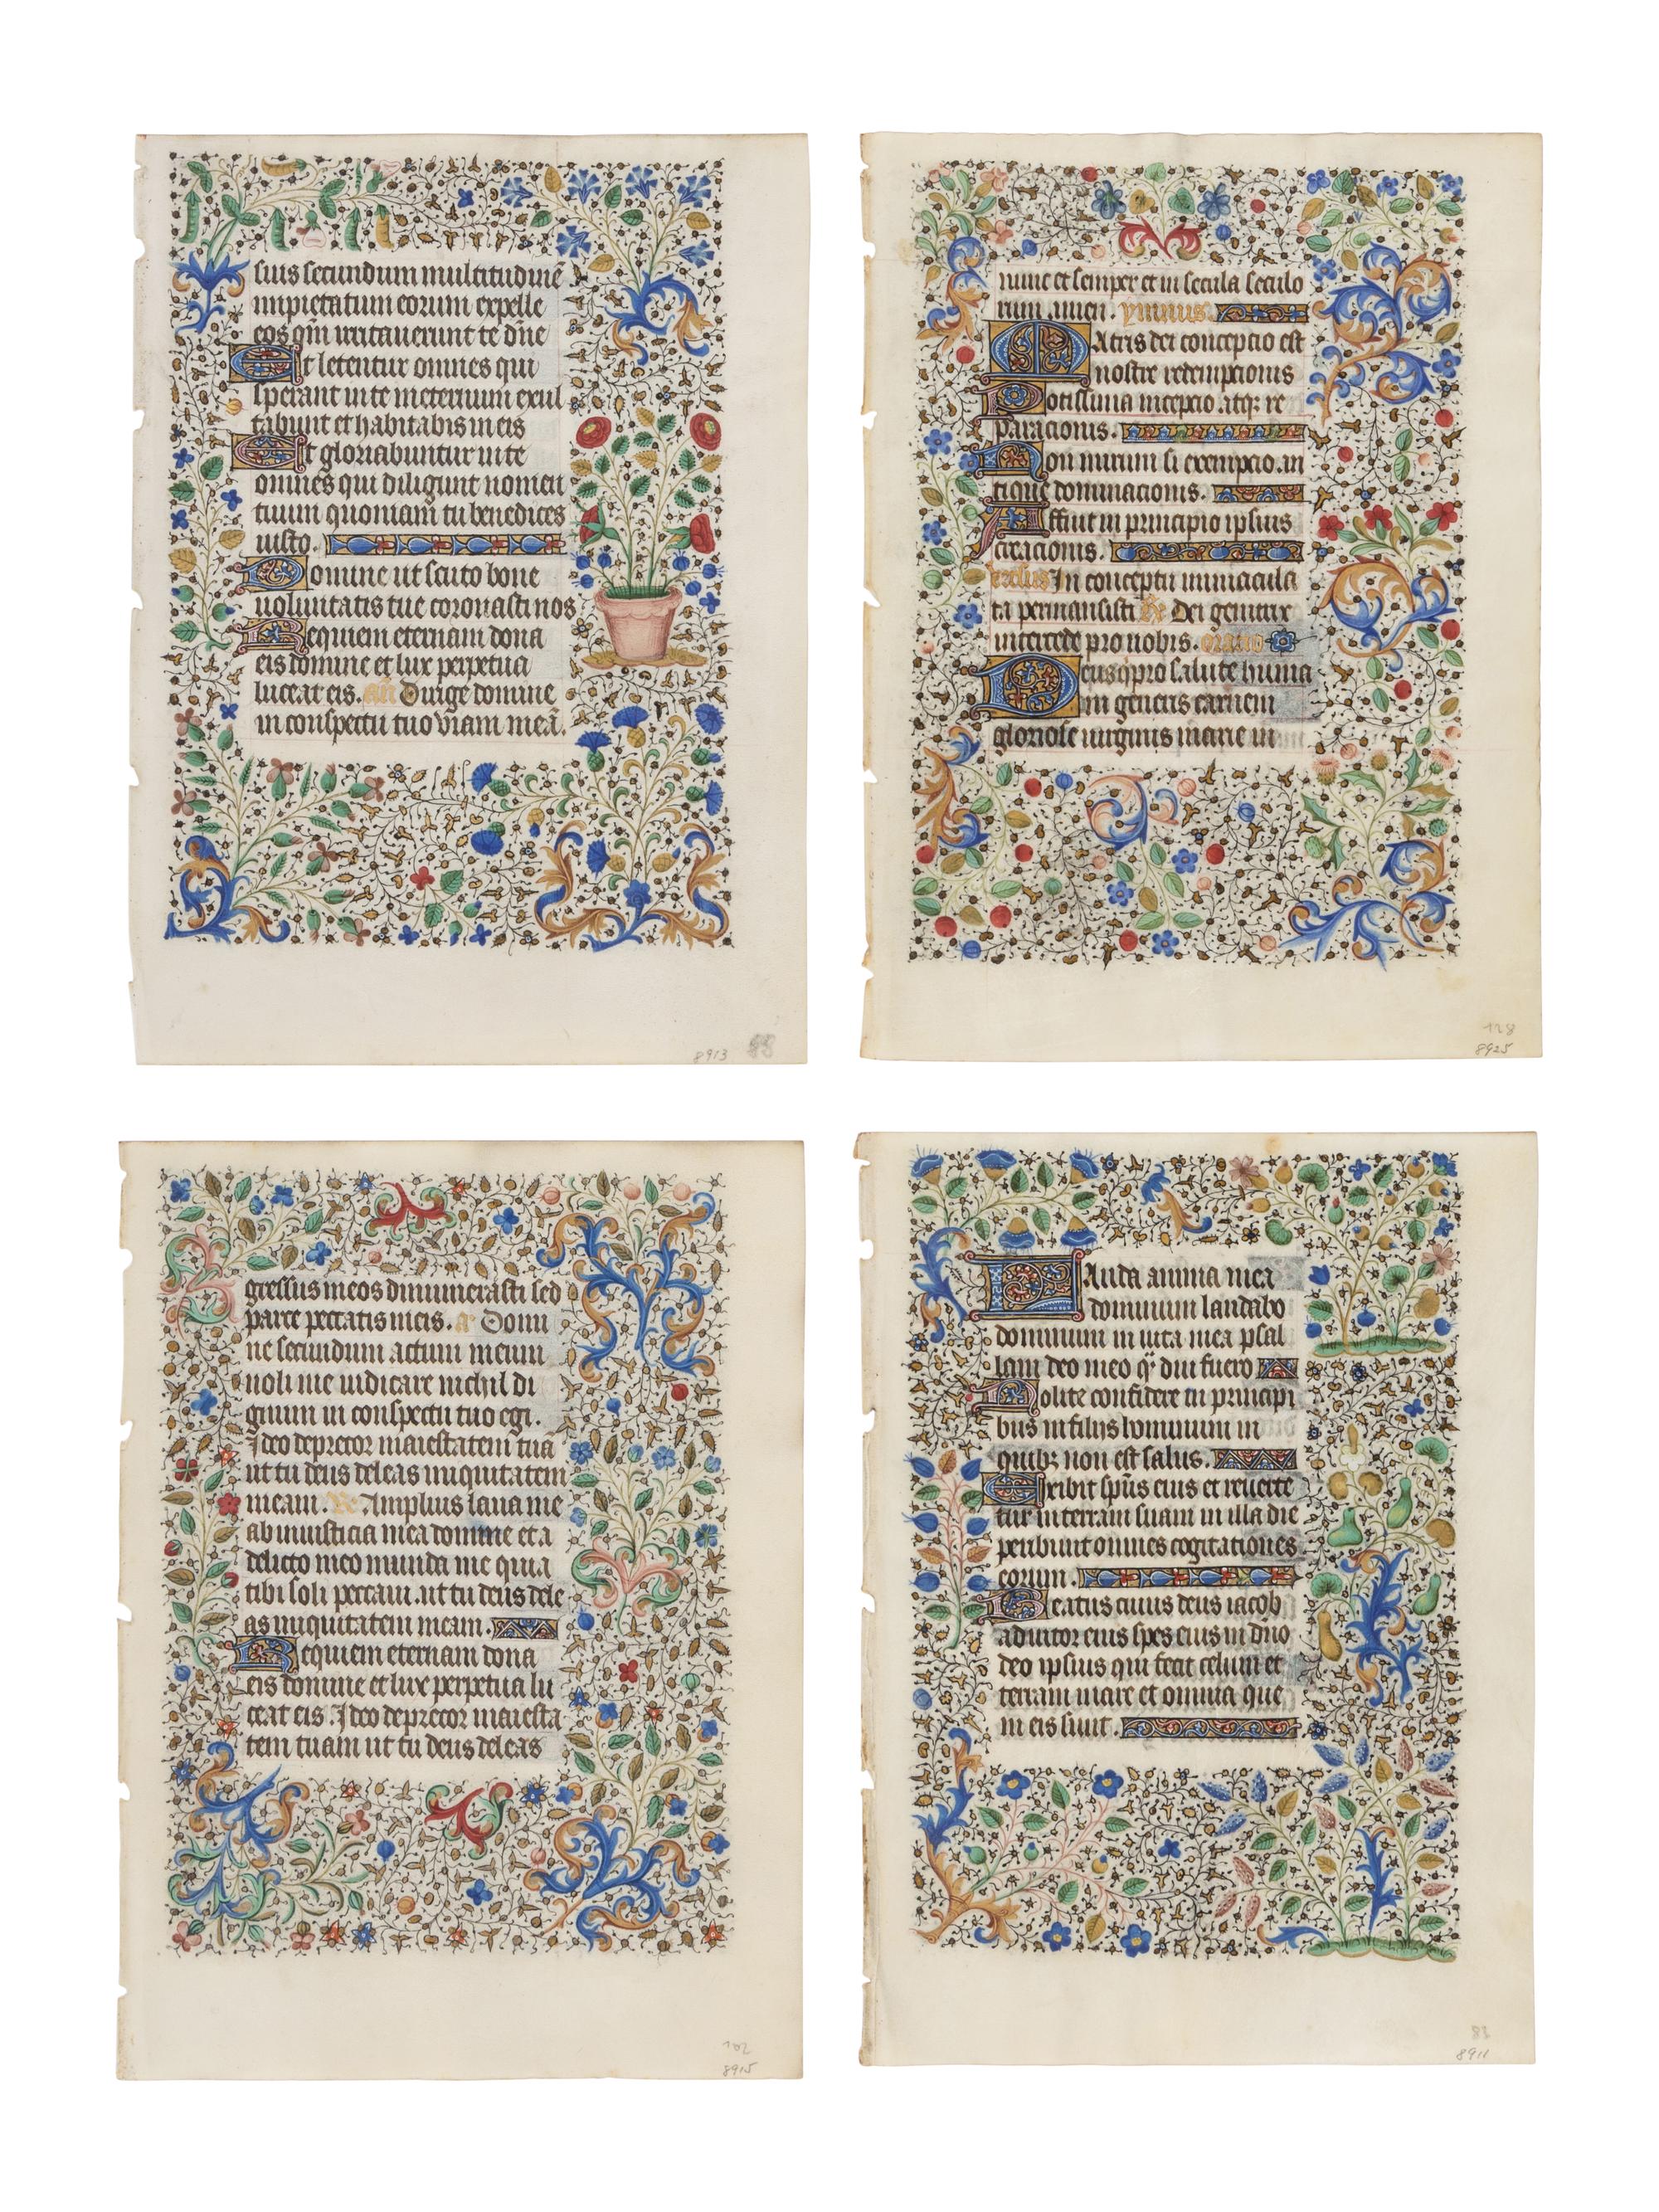 suis secundum multitudinē
impietatum eorum expelle
eos qm̄ irritauerunt te dn̄e
Et letentur omnes qui
sperant in te in eternum exul
tabunt et habitabis in eis
Et gloriabuntur in te
omnes qui diligunt nomen
tuum quoniam tu benedices
iusto.
Domine ut scuto bone
uoluntatis tue coronasti nos
Requiem eternam dona
eis domine et lux perpetua
luceat eis. an̄ Dirige domine
in conspectu tuo viam meā.
8913 88
nunc et semper et in secula seculo
rum amen. ymnus.
Matris dei concepcio est
nostre redempcionis
Potissima incepcio. atq; re
paracionis.
Non mirum si exempcio. an
tique dominacionis.
Affuit in principio ipsius
creacionis.
versus In conceptu immacula
ta permansisti R̄ Dei genitrix
intercede pro nobis. oratio
Deus q̇ pro salute huma
ni generis carnem
gloriose uirginis marie in
128
8925
gressus meos dinumerasti sed
parce peccatis meis. a Domi
ne secundum actum meum
noli me iudicare nichil di
gnum in conspectu tuo egi.
Ideo deprecor maiestatem tuā
ut tu deus deleas iniquitatem
meam. V Amplius laua me
ab iniusticia mea domine et a
delicto meo munda me quia
tibi soli peccaui. ut tu deus dele
as iniquitatem meam.
Requiem eternam dona
eis domine et lux perpetua lu
ceat eis. Ideo deprecor maiesta
tem tuam ut tu deus deleas
102
8915
Lauda anima mea
dominum laudabo
dominum in uita mea psal
lam deo meo q̄ diu fuero
Nolite confidere in principi
bus in filijs hominum in
quib; non est salus.
Exibit sp̄us eius et reuerte
tur in terram suam in illa die
peribunt omnes cogitationes
eorum.
Beatus cuius deus iacob
adiutor eius spes eius in dn̄o
deo ipsius qui fecit celum et
terram mare et omnia que
in eis sunt.
83
8911